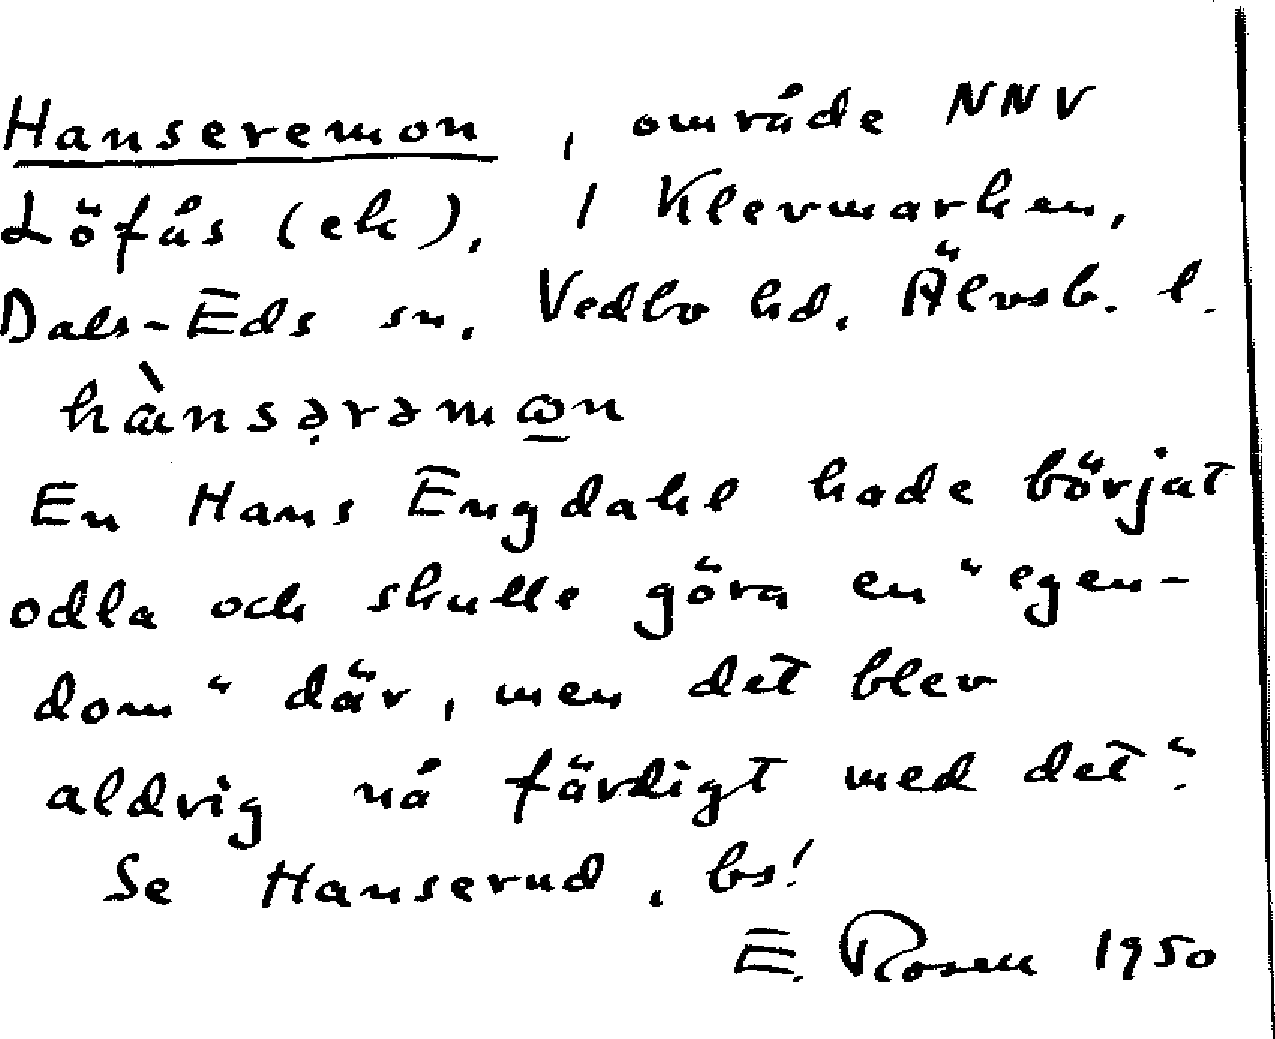 Hanseremon, område NNV
Löfås (ek), 1 Klevmarken,
Dals-Eds sn, Vedbo hd, Älvsb. l.
hànsə̣rəmω̲n
En Hans Engdahl hade börjat
odla och skulle göra en "egen-
dom" där, men det blev
aldrig nå färdigt med det".
Se Hanserud, bs!
E. Rosen 1950